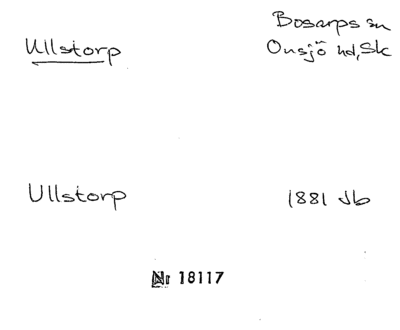 Bosarps sn
Ullstorp Onsjö hd, Sk
Ullstorp 1881 Jb
Nr 18117